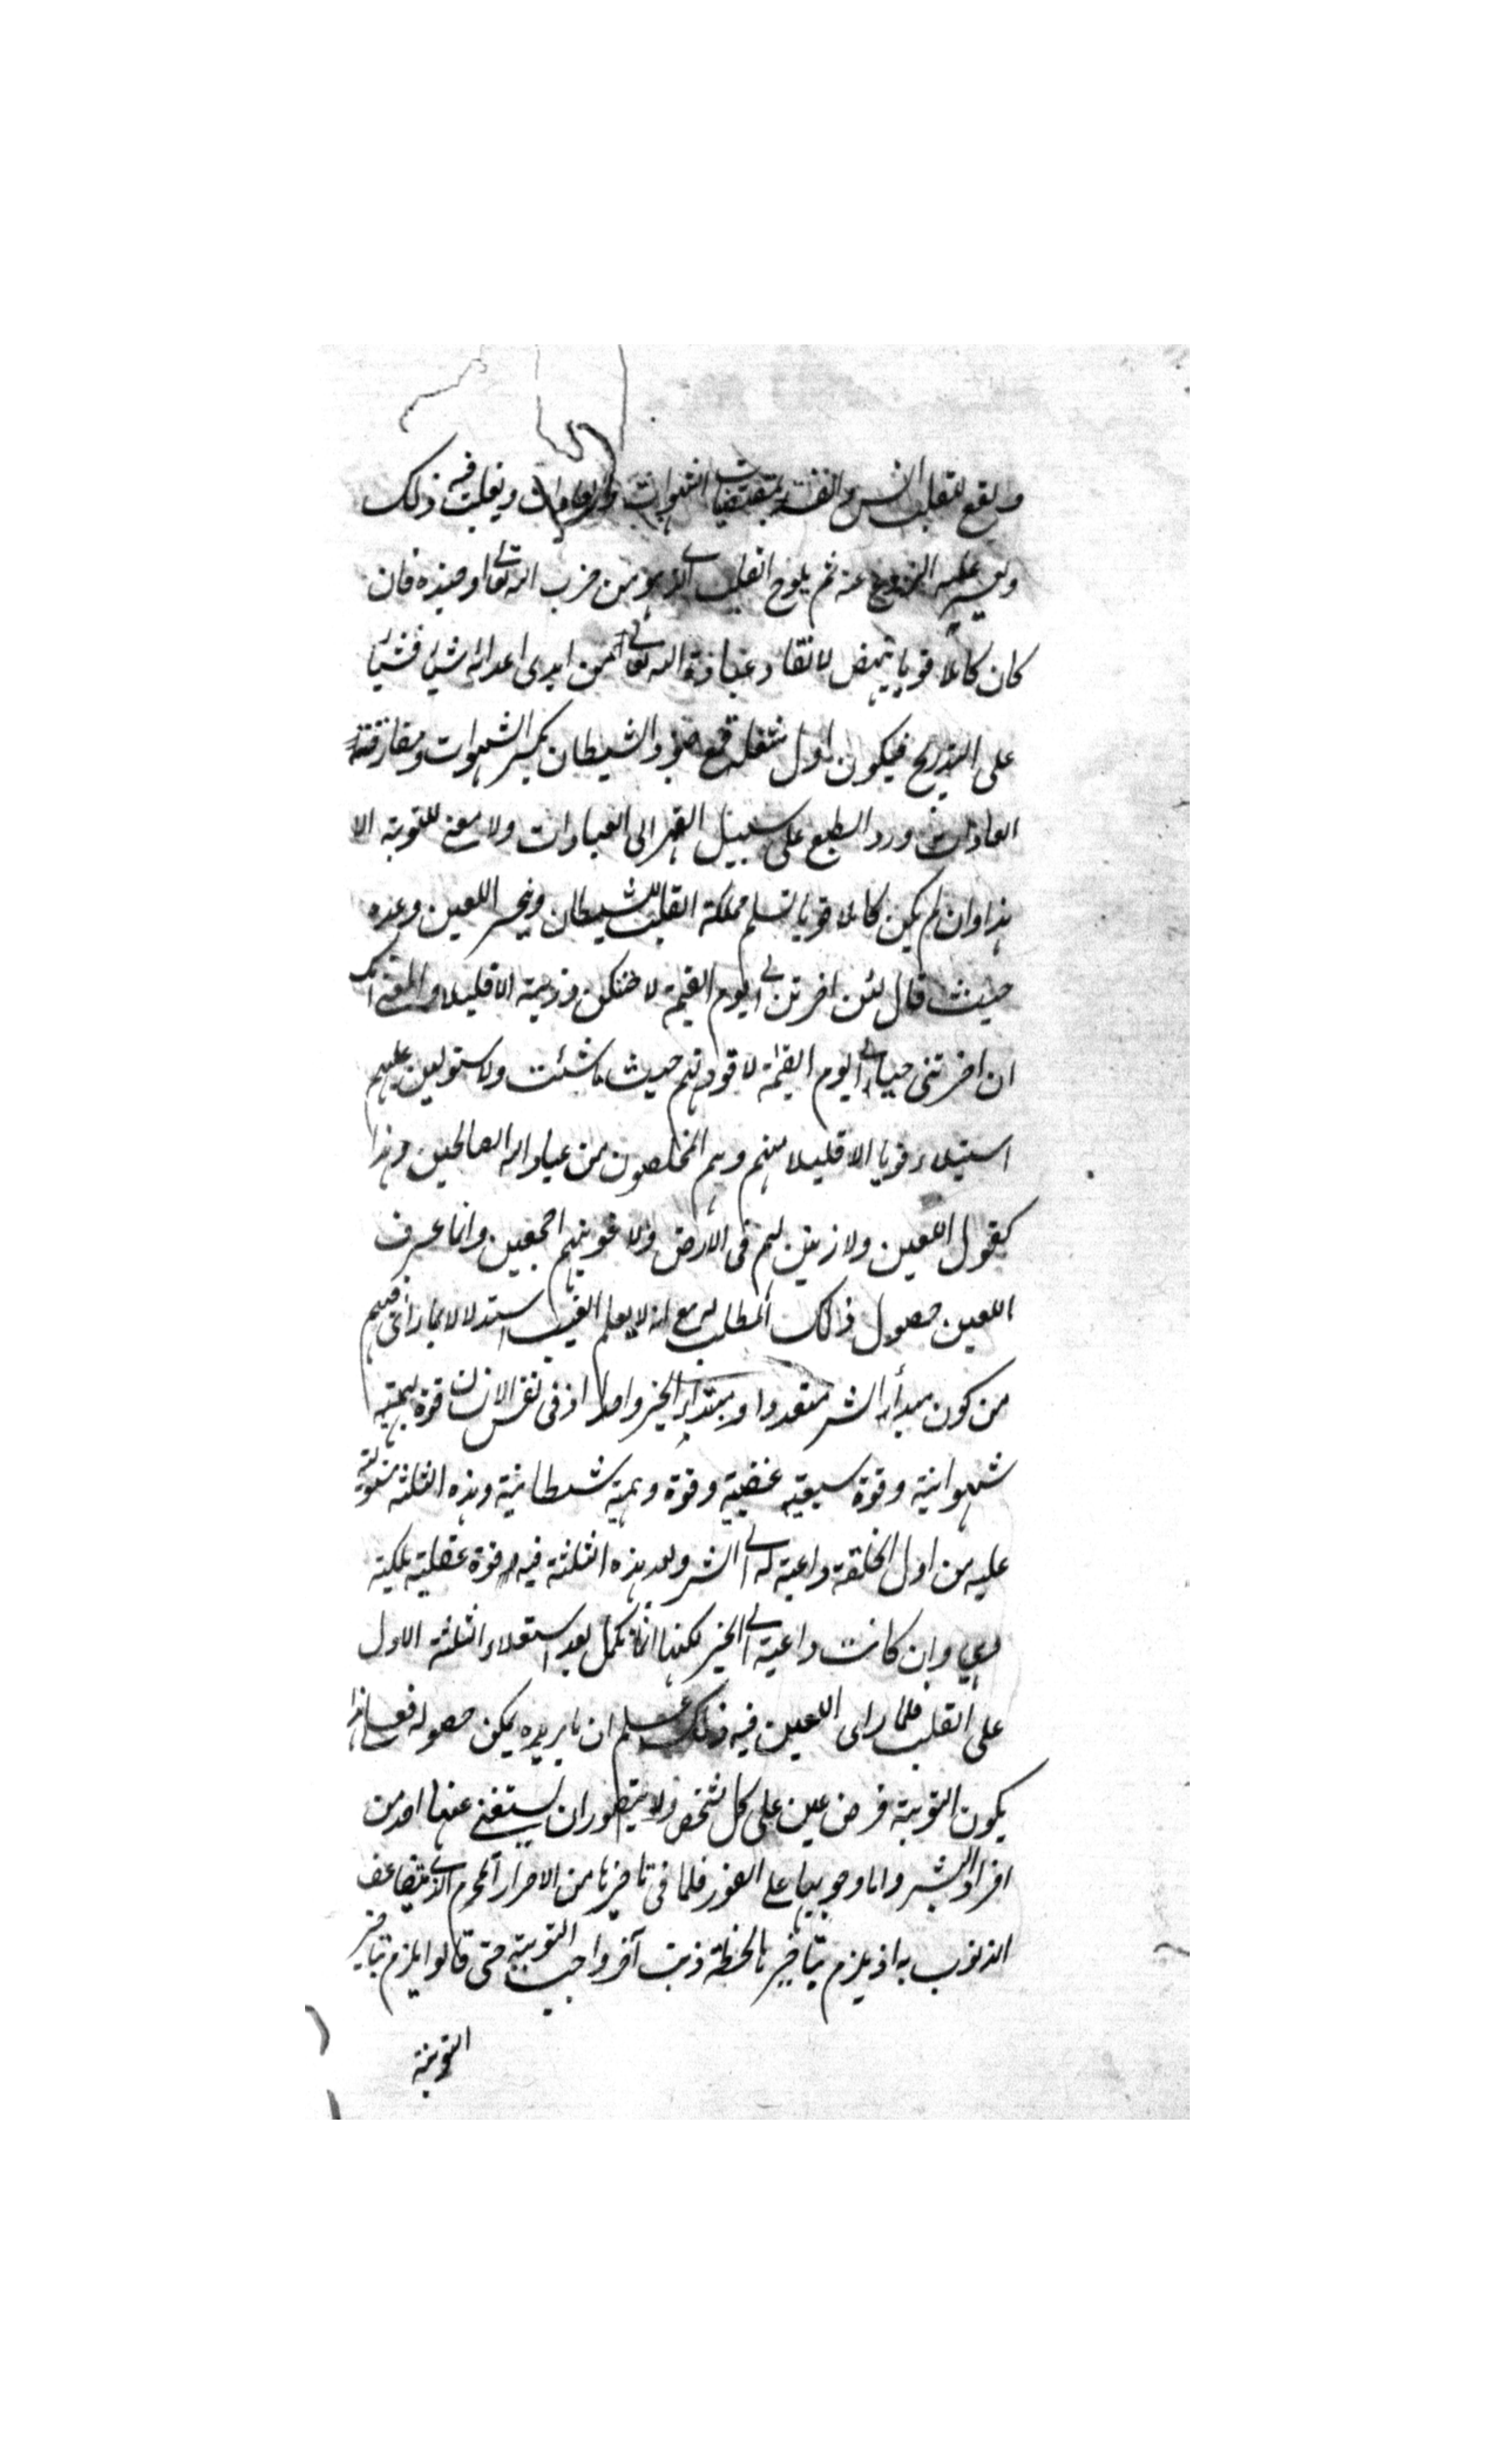 ويقع للقلب الانس والفة بمقتضيات الشهوات والعادات ويغلب فيه ذلك
ويعسر عليه النزوع عنه ثم يلوح القلب الذي هو من حزب الله تعالى وجنده فان
كان كاملا قويا ينهض لانقاد عباد الله تعالى من ايدى اعدائه شيئا فشيئا
على التدريج فيكون اول شغله قمع جنود الشيطان بكسر الشهوات ومفارقة
العادات ورد الطبع على سبيل القهر الى العبادات ولا معنى للتوبة الا
هذا وان لم يكن كاملا قويا تسلم مملكة القلب للشيطان وينجز اللعين وعده
حيث قال لئن اخرتن الى يوم القيمة لاحتنكن ذريته الا قليلا والمعنى انك
ان اخرتنى حيا الى يوم القيمة لاقودنهم حيث ما شئت ولاستولين عليهم
استيلاء قويا الا قليلا منهم وهم المخلصون من عباد الله الصالحين وهذا
كقول اللعين ولازينن لهم فى الارض ولاغوينهم اجمعين وانما عرف
اللعين حصول ذلك المطلب له مع انه لا يعلم الغيب استدلالا بما راى فيهم
من كون مبدأ الشر متعددا ومبتدأ الخير واحدا اذ فى نفس الانسان قوة بهيمية
شهوانية وقوة سبعية غضبية وقوة وهمية شيطانية وهذه الثلثة مستولية
عليه من اول الخلقة داعية له الى الشر وبعد هذه الثلثة فيه قوة عقلية ملكية
وهي وان كانت داعية الى الخير لكنها انما تكمل بعد استعلاء الثلثة الاول
على القلب فلما راى اللعين فيه ذلك علم ان ما يريده يمكن حصوله فعلى هذا
يكون التوبة فرض عين على كل شخص ولا يتصور ان يستغنى عنها احد من
افراد البشر واما وجوبها على الفور فلما فى تاخيرها من الاصرار المحرم الذي يتضاعف
الذنوب به اذ يلزم بتاخيرها لحظة ذنب آخر واجب التوبة حتى قالوا يلزم بتاخير
التوبة